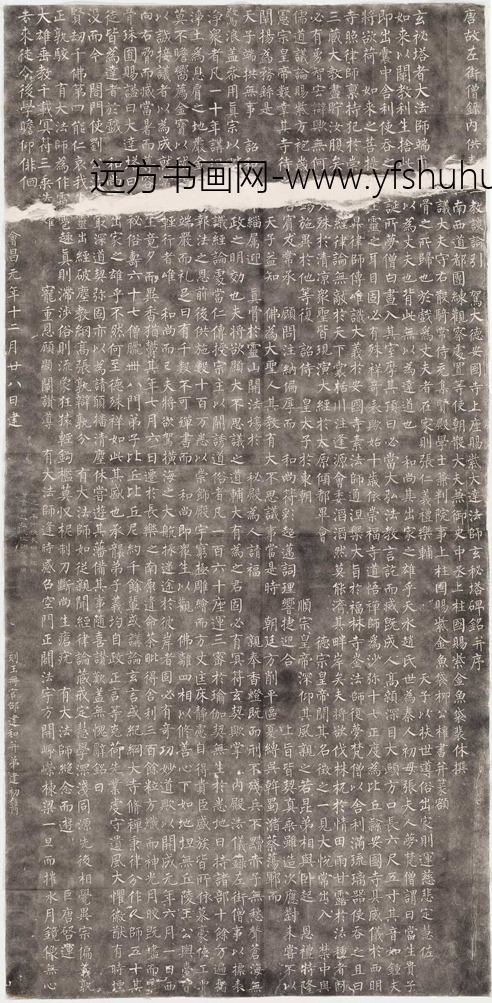 唐故左街僧錄內供教談論引 駕大德安國寺上座賜紫大達法師玄秘塔碑銘并序
南西道都團練觀察處置等使朝散大夫兼御史中丞上柱國賜紫金魚袋裴休撰
議大夫守右散騎常侍充集賢殿學士兼判院事上柱國賜紫金魚袋柳公權書并篆額
玄秘塔者大法師端骨之所歸也於戲為丈夫者在家則張仁義禮樂輔 天子以扶世導俗出家則運慈悲定慧佐
如來以闡教利生捨以為丈夫也背此無以為達道也 和尚其出家之雄乎天水趙氏世為秦人初母張夫人夢梵僧謂曰當生貴子
即出囊中舍利使吞之誕所夢僧白晝入其室摩其頂曰必當大弘法教言訖而滅既成人高顙深目大頤方口長六尺五寸其音如鍾夫
將欲荷 如來之菩提靈之耳目固必有殊祥奇表歟始十歲依崇福寺道悟禪師為沙彌十七正度為比丘隸安國寺具威儀於西明
寺照律師稟持犯於崇昇律師傳唯識大義於安國寺素法師通涅槃大旨於福林寺崟法師復夢梵僧以舍利滿琉璃器使吞之且曰
三藏大教盡貯汝腹矣經律論無敵於天下囊括川注逢源會委滔滔然莫能濟其畔岸矣夫將欲伐株杌於情田雨甘露於法種者固
必有勇智宏辯歟無何殊於清涼眾聖皆現演大經於太原傾都畢會 德宗皇帝聞其名徵之一見大悅常出入 禁中與
儒道議論賜紫方袍歲施異於他等復 詔侍 皇太子於東朝 順宗皇帝深仰其風親之若昆弟相與臥起 恩禮特隆
憲宗皇帝數幸其寺待賓友常承 顧問注納偏厚而 和尚符彩超邁詞理響捷迎合 上旨皆契真乘雖造次應對未嘗不以
闡揚為務繇是 天子益知 佛為大聖人其教有大不思議事當是時 朝廷方削平區夏縛吳斡蜀瀦蔡蕩鄆而
天子端拱無事 詔緇屬迎 真骨於靈山開法場於 秘殿為人請福 親奉香燈既而刑不殘兵不黷赤子無愁聲蒼海無
驚浪蓋參用真宗以政之明効也夫將欲顯大不思議之道輔大有為之君固必有冥符玄契歟掌 內殿法儀錄左街僧事以摽表
淨眾者凡一十年講識經論處當仁傳授宗主以開誘道俗者凡一百六十座運三密於瑜伽契無生於悉地日持諸部十餘万遍指
淨土為息肩之地嚴報法之恩前後供施數十百万悉以崇飾殿宇窮極雕繪而方丈匡床靜慮自得貴臣盛族皆所依慕豪俠工賈
莫不瞻嚮薦金寶以端嚴而禮足日有千數不可殫書而 和尚即眾生以觀 佛離四相以修善心下如地坦無丘陵王公輿臺皆
以誠接議者以為成就輕行者唯 和尚而已夫將欲駕橫海之大航拯迷途於彼岸者固必有奇功妙道歟以開成元年六月一日西向
右脅而滅當暑而尊上竟夕而異香猶鬱其年七月六日遷於長樂之南原遺命荼毗得舍利三百餘粒方熾而神光月皎既燼而靈
骨珠圓賜謚曰大達塔秘俗壽六十七僧臘卌八門弟子比丘比丘尼約千餘輩或講論玄言或紀綱大寺脩禪秉律分作人師五十其
徒皆為達者於戲出家之雄乎不然何至德殊祥如此其盛也承襲弟子義均自政正言等克荷先業虔守遺風大懼徽猷有時堙
沒而今 閤門使劉最深道契弥固亦以為請願播清塵休嘗遊其藩備其事隨喜讚歎蓋無愧辭銘曰
賢劫千佛第四能仁哀我靈出經破塵教網高張孰辯孰分 有大法師如從親聞經律論藏戒定慧學深淺同源先後相覺異宗偏義孰
正孰駮 有大法師為作霜趣真則滯涉俗則流象狂猿輕鉤檻莫收柅制刀斷尚生瘡疣 有大法師絕念而遊 巨唐啟運
大雄垂教千載冥符三乘 寵重恩顧顯闡讚導 有大法師逢時感召空門正闢法宇方開崢嶸棟梁一旦而摧水月鏡像無心
去來徒令後學瞻仰徘徊
會昌元年十二月廿八日建 刻玉冊官邵建和并弟建初鐫
远方书画网-www.yfshuhu